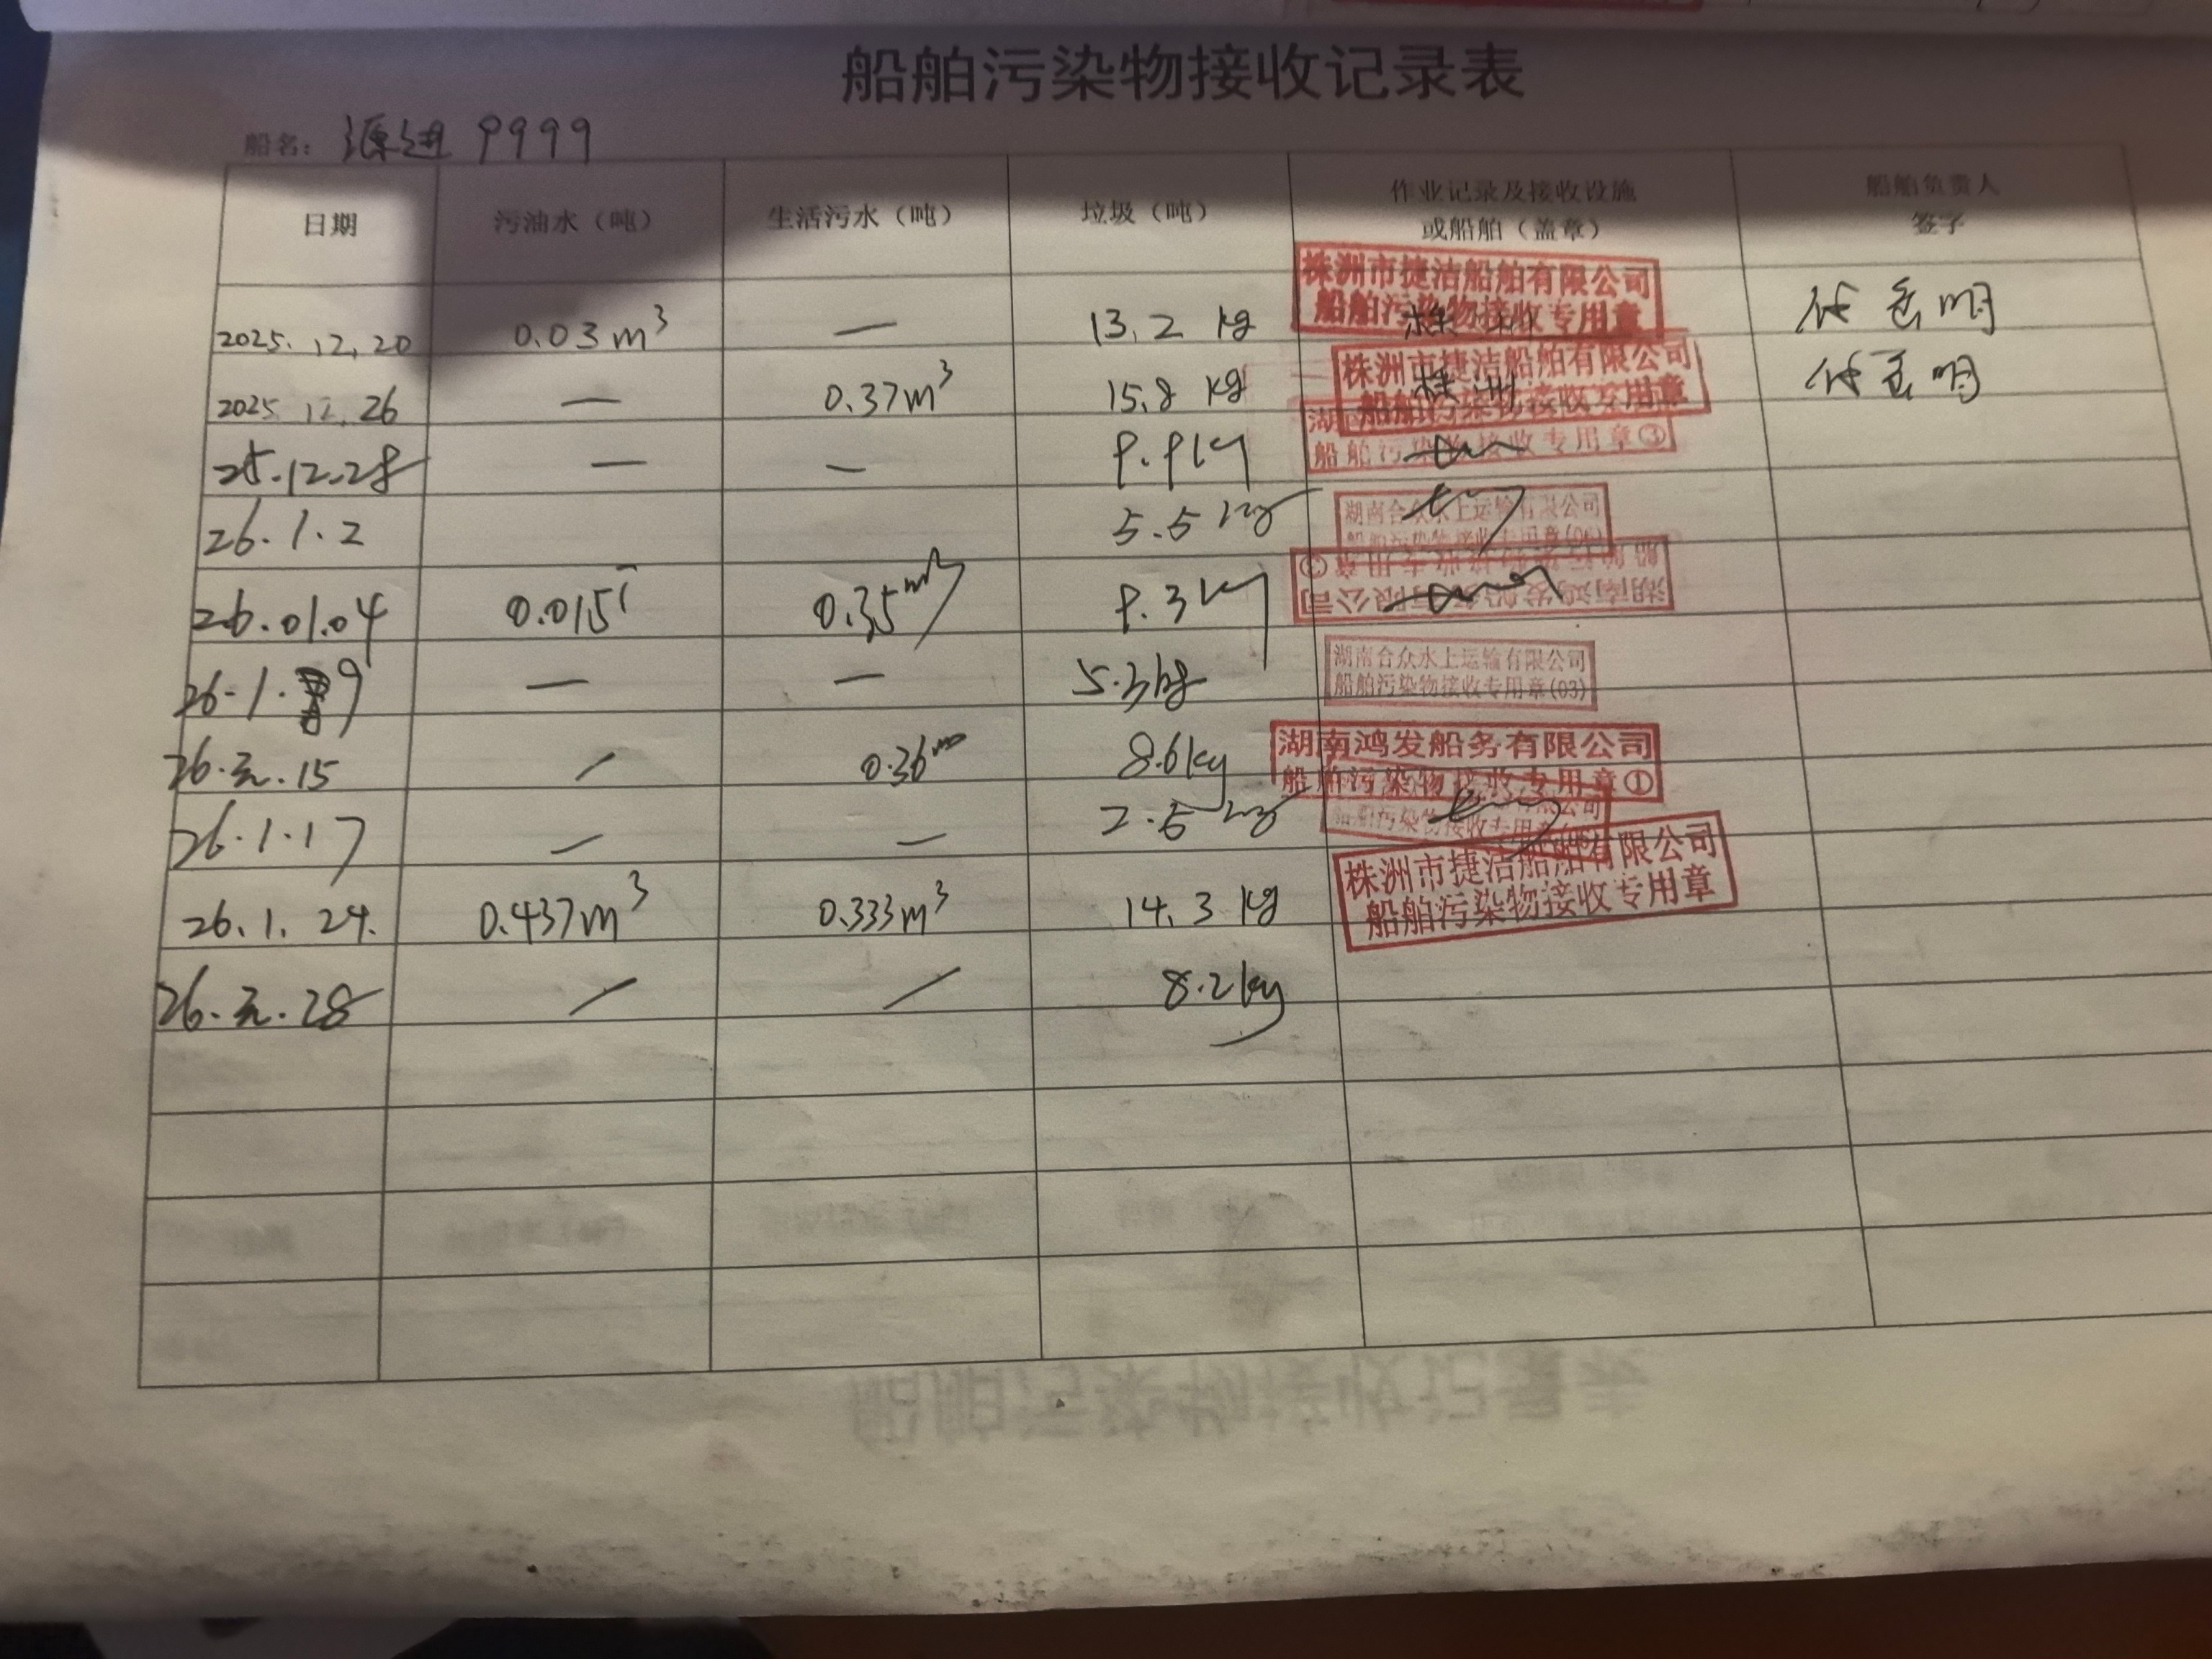 船舶污染物接收记录表
船名: 源进 9999
日期 污油水（吨） 生活污水（吨） 垃圾（吨） 作业记录及接收设施或船舶（盖章） 船舶负责人签字
株洲市捷洁船舶有限公司
船舶污染物接收专用章
2025.12.20 0.03m³ — 13.2 kg 株洲 明
株洲市捷洁船舶有限公司
船舶污染物接收专用章
2025.12.26 — 0.37m³ 15.8 kg 株洲 明
25.12.28 — — 9.9kg
船舶污染物接收专用章③
26.1.2 5.5kg
湖南合众水上运输有限公司
船舶污染物接收专用章
26.01.04 0.015 0.35m³ 9.3kg
湖南鸿发船务有限公司
船舶污染物接收专用章③
26.1.9 — — 5.3kg
湖南合众水上运输有限公司
船舶污染物接收专用章(03)
26.元.15 / 0.36m³ 8.6kg
湖南鸿发船务有限公司
船舶污染物接收专用章①
26.1.17 — — 2.5kg
船舶污染物接收专用章
26.1.24. 0.437m³ 0.333m³ 14.3 kg
株洲市捷洁船舶有限公司
船舶污染物接收专用章
26.元.28 / / 8.2kg